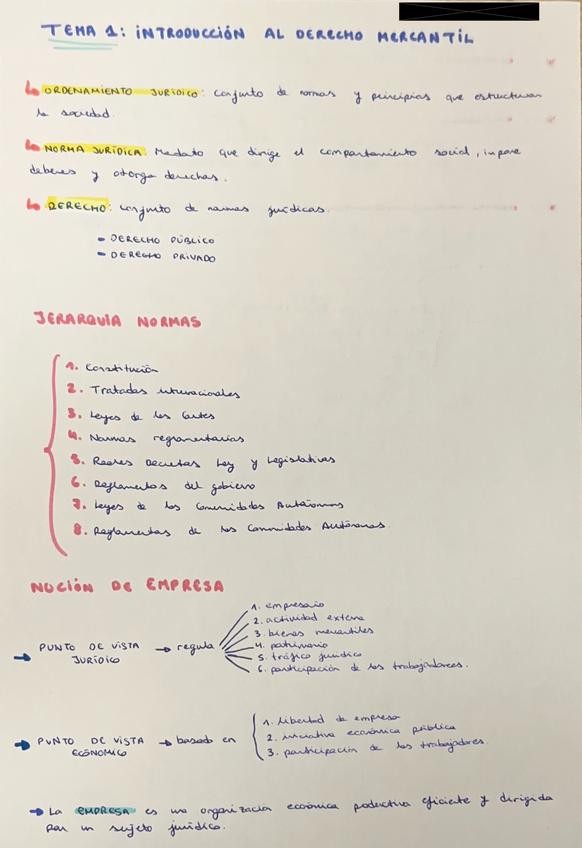 TEMA 1: INTRODUCCIÓN AL DERECHO MERCANTIL
ORDENAMIENTO JURÍDICO: Conjunto de normas y principios que estructuran
la sociedad.
NORMA JURÍDICA: Mandato que dirige el comportamiento social, impone
deberes y otorga derechos.
DERECHO: conjunto de normas jurídicas.
- DERECHO PÚBLICO
- DERECHO PRIVADO
JERARQUÍA NORMAS
1. Constitución
2. Tratados internacionales
3. Leyes de las Cortes
4. Normas reglamentarias
5. Reales Decretos Ley y Legislativos
6. Reglamentos del gobierno
7. Leyes de las Comunidades Autónomas
8. Reglamentos de las Comunidades Autónomas.
NOCIÓN DE EMPRESA
1. empresario
2. actividad externa
3. bienes mercantiles
4. patrimonio
5. tráfico jurídico
6. participación de los trabajadores.
→ PUNTO DE VISTA → regula
JURÍDICO
1. libertad de empresa
2. iniciativa económica pública
3. participación de los trabajadores.
→ PUNTO DE VISTA → basado en
ECONÓMICO
→ La EMPRESA es una organización económica productiva eficiente y dirigida
por un sujeto jurídico.